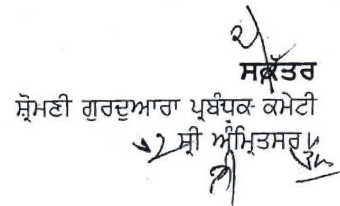 ਸਕੱਤਰ
ਸ਼੍ਰੋਮਣੀ ਗੁਰਦੁਆਰਾ ਪ੍ਰਬੰਧਕ ਕਮੇਟੀ
ਸ਼੍ਰੀ ਅੰਮ੍ਰਿਤਸਰ